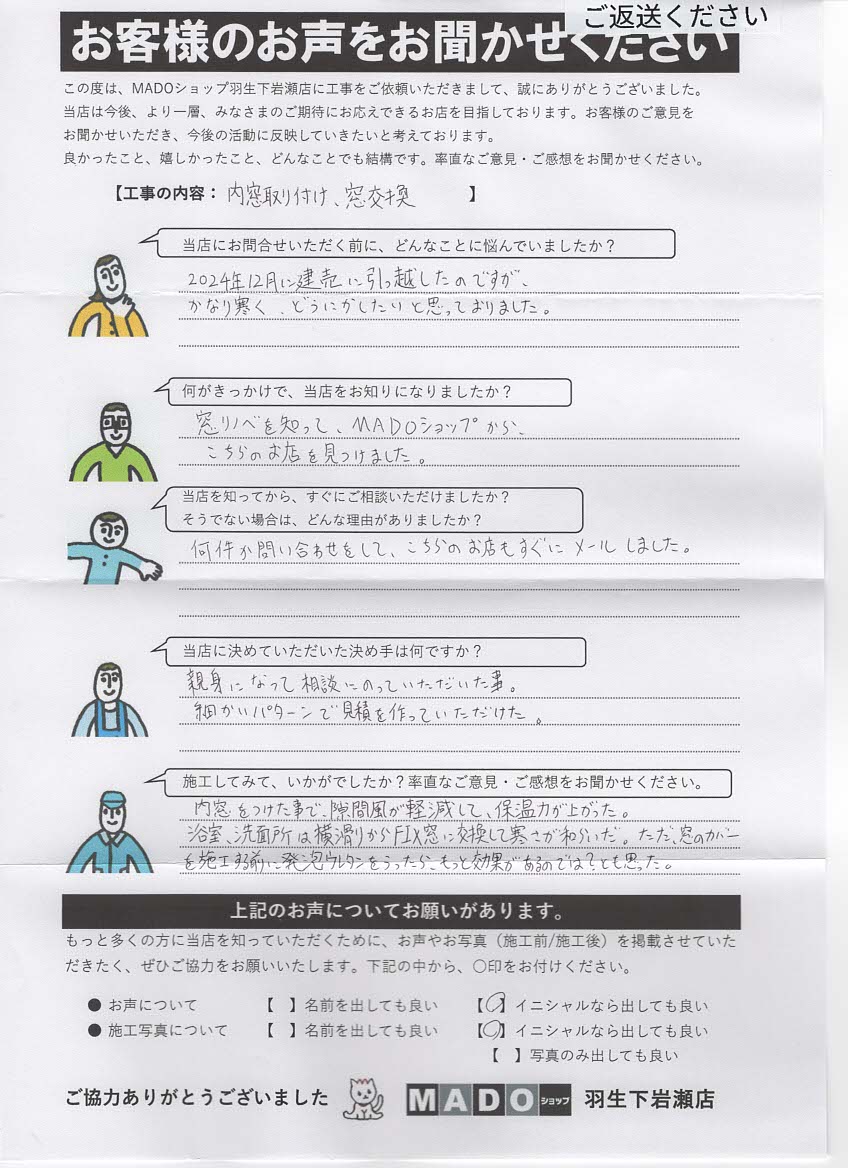 ご返送ください
お客様のお声をお聞かせください
この度は、MADOショップ羽生下岩瀬店に工事をご依頼いただきまして、誠にありがとうございました。
当店は今後、より一層、みなさまのご期待にお応えできるお店を目指しております。お客様のご意見を
お聞かせいただき、今後の活動に反映していきたいと考えております。
良かったこと、嬉しかったこと、どんなことでも結構です。率直なご意見・ご感想をお聞かせください。
【工事の内容： 内窓取り付け、窓交換 】
当店にお問合せいただく前に、どんなことに悩んでいましたか？
2024年12月に建売に引っ越したのですが、
かなり寒く、どうにかしたいと思っておりました。
何がきっかけで、当店をお知りになりましたか？
窓リノベを知って、MADOショップから、
こちらのお店を見つけました。
当店を知ってから、すぐにご相談いただけましたか？
そうでない場合は、どんな理由がありましたか？
何件か問い合わせをして、こちらのお店もすぐにメールしました。
当店に決めていただいた決め手は何ですか？
親身になって相談にのっていただいた事。
細かいパターンで見積を作っていただけた。
施工してみて、いかがでしたか？率直なご意見・ご感想をお聞かせください。
内窓をつけた事で、隙間風が軽減して、保温力が上がった。
浴室、洗面所は横滑りからFIX窓に交換して寒さが和らいだ。ただ、窓のカバー
を施工する前に発泡ウレタンをうったら、もっと効果があるのでは？とも思った。
上記のお声についてお願いがあります。
もっと多くの方に当店を知っていただくために、お声やお写真（施工前/施工後）を掲載させていた
だきたく、ぜひご協力をお願いいたします。下記の中から、〇印をお付けください。
● お声について 【 】名前を出しても良い 【〇】イニシャルなら出しても良い
● 施工写真について 【 】名前を出しても良い 【〇】イニシャルなら出しても良い
【 】写真のみ出しても良い
ご協力ありがとうございました MADOショップ 羽生下岩瀬店